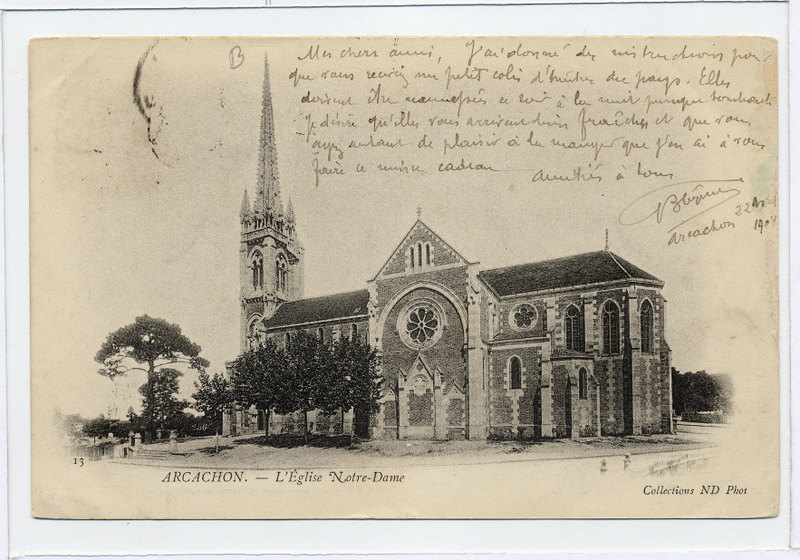 B
Mes chers amis, J'ai donné des instructions pour
que vous receviez un petit colis d'huîtres du pays. Elles
doivent être ce soir à la nuit
Je désire qu'elles vous arrivent bien fraîches et que vous
ayez autant de plaisir à la manger que j'en ai à vous
faire ce mince cadeau
Amitiés à tous
22
Arcachon
1904
13
ARCACHON. — L'Église Notre-Dame
Collections ND Phot